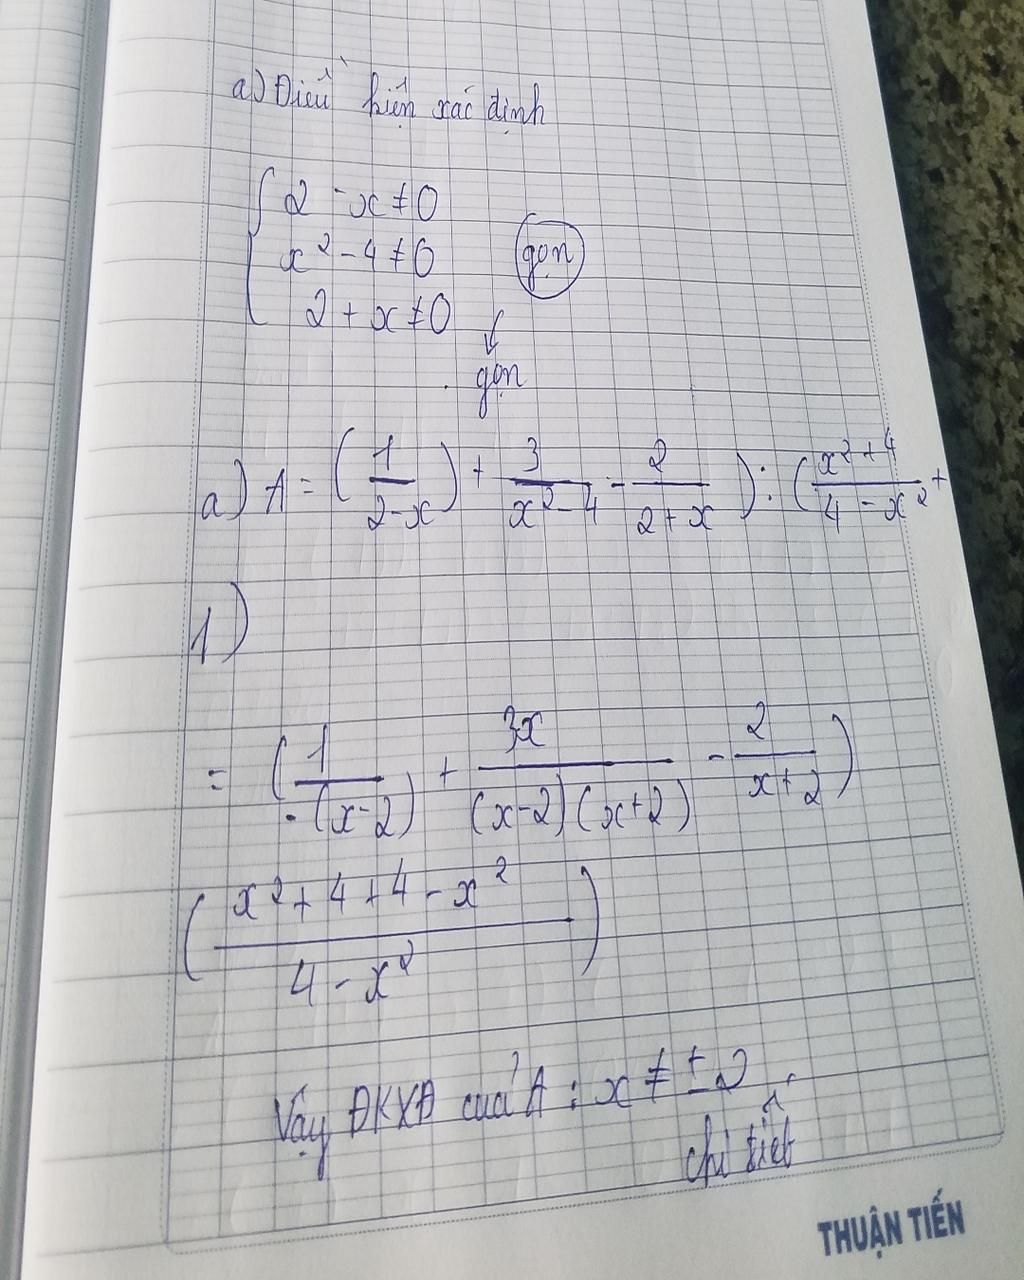 a) Điều kiện xác định
{ 2 - x ≠ 0
x² - 4 ≠ 0
2 + x ≠ 0
gọn
gọn
a) A = (1/(2-x)) + 3/(x²-4) - 2/(2+x)) : (x²+4/(4-x²) +
1)
= (1/(-(x-2)) + 3x/((x-2)(x+2)) - 2/(x+2))
((x²+4+4-x²)/(4-x²))
Vậy ĐKXĐ của A : x ≠ ±2
chi tiết
THUẬN TIẾN